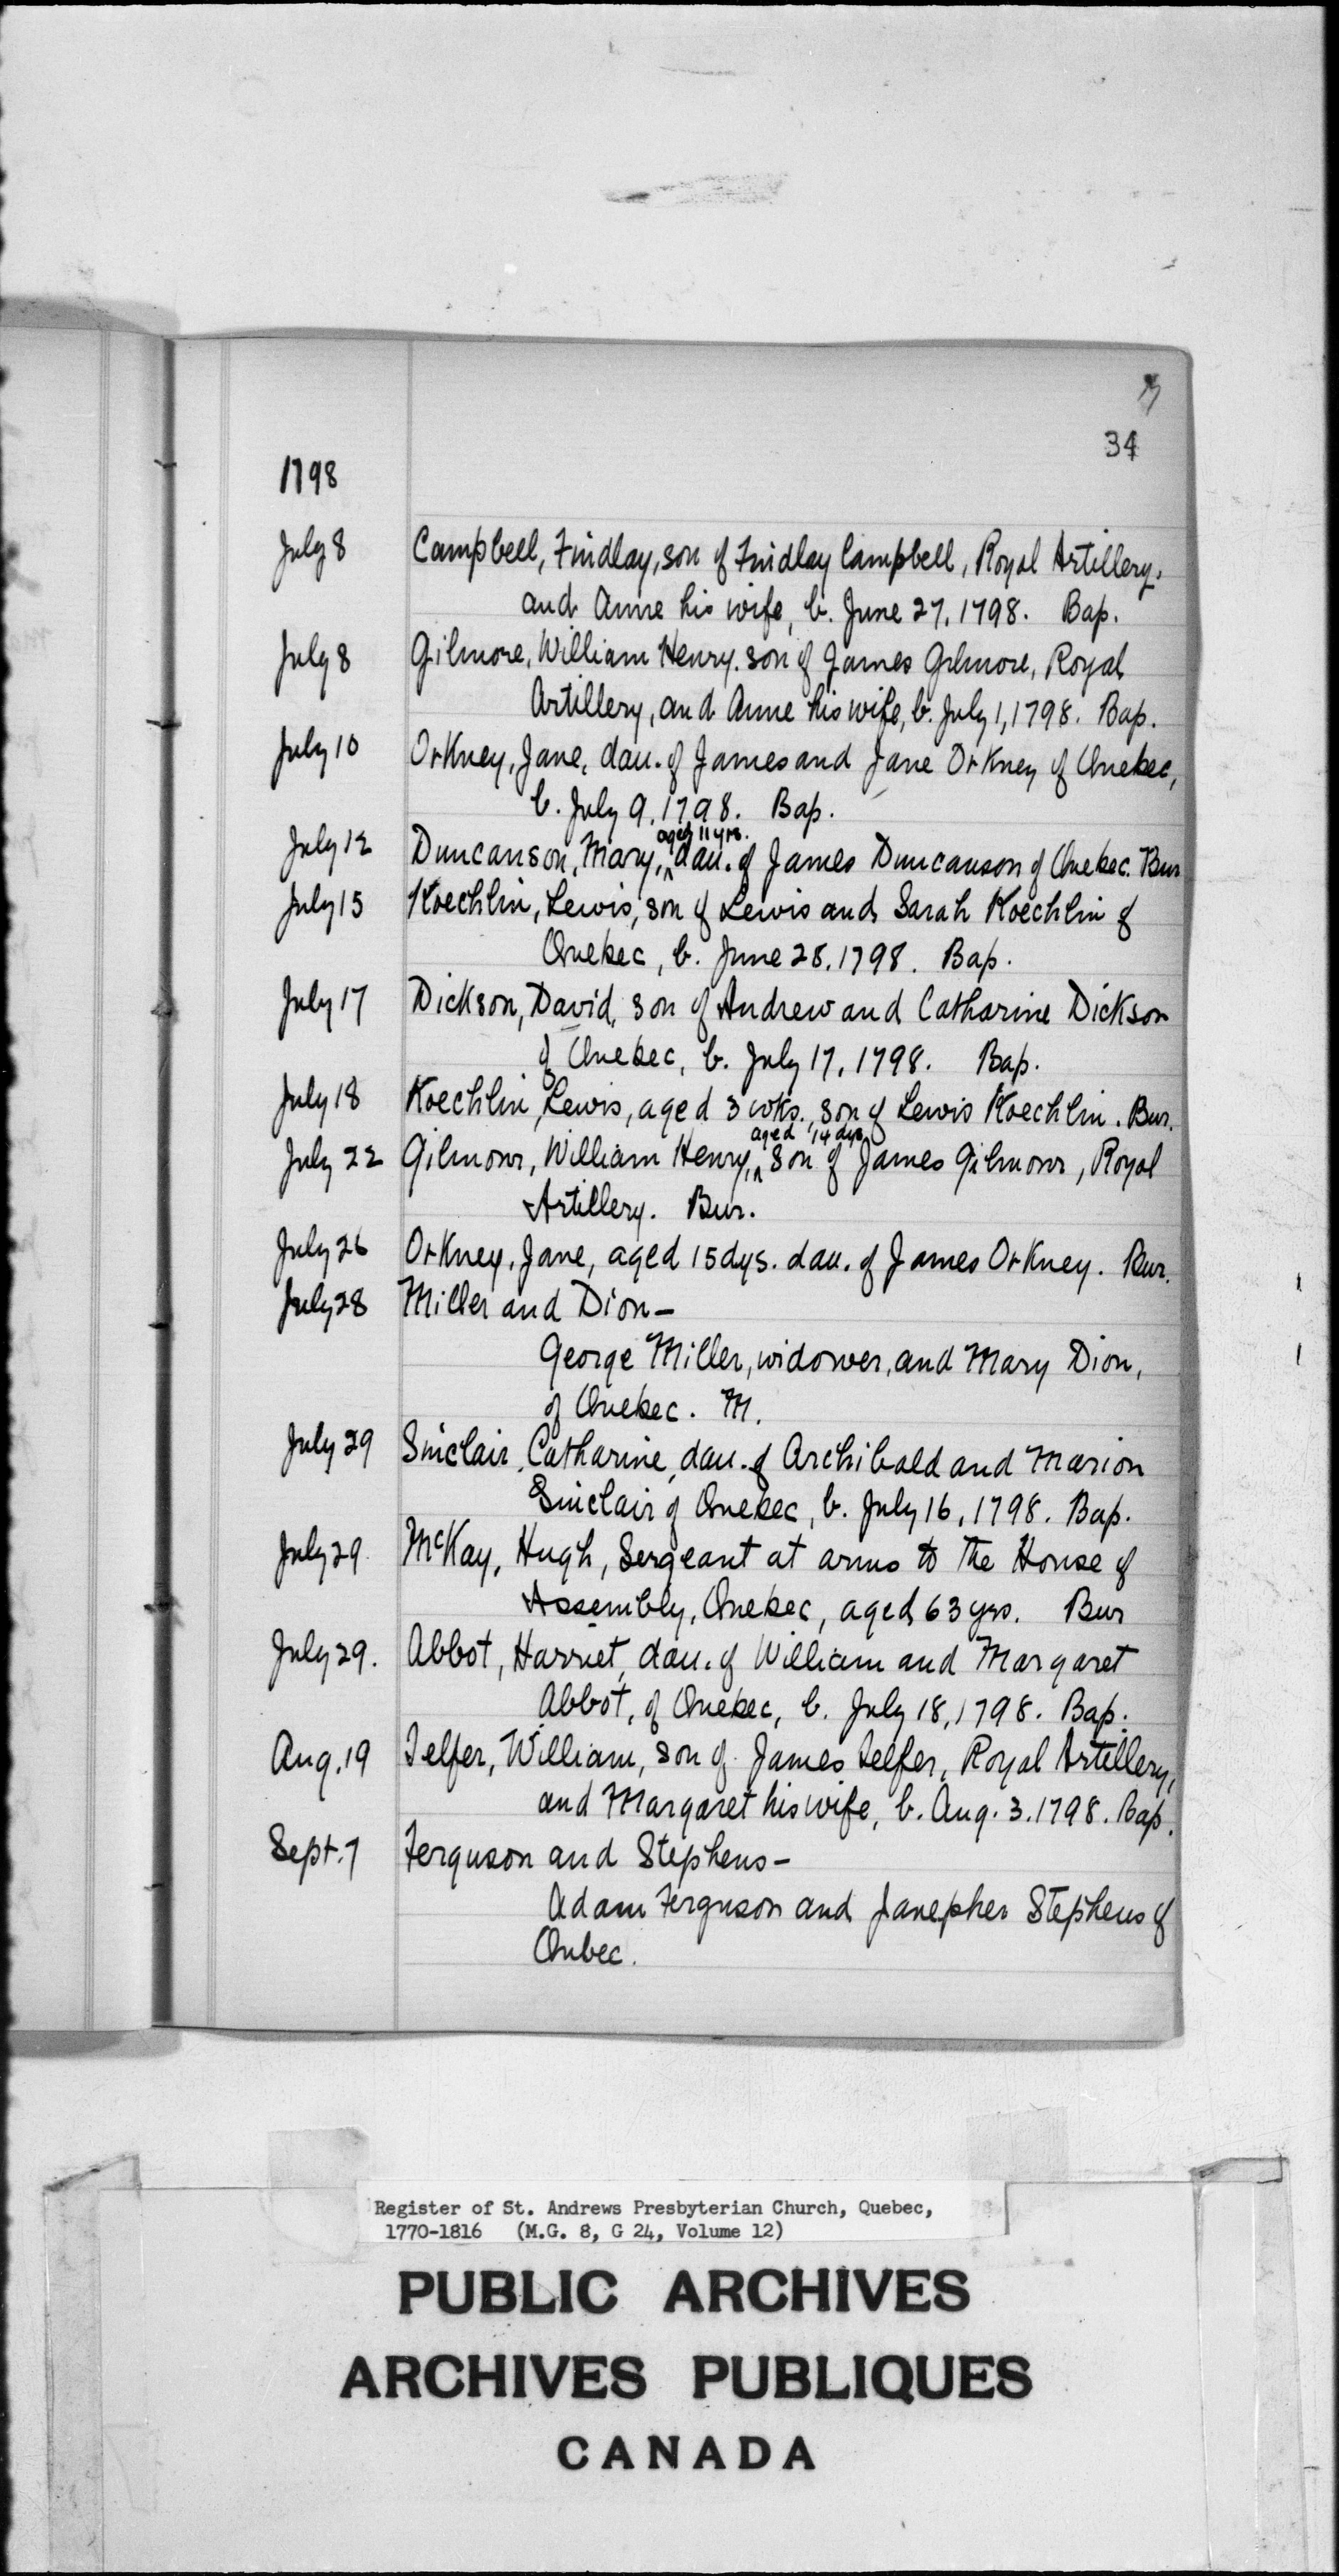 34
1798
July 8 Campbell, Findlay, son of Findlay Campbell, Royal Artillery,
and Anne his wife, b. June 27, 1798. Bap.
July 8 Gilmore, William Henry, son of James Gilmore, Royal
Artillery, and Anne his wife, b. July 1, 1798. Bap.
July 10 Orkney, Jane, dau. of James and Jane Orkney of Quebec,
b. July 9, 1798. Bap.
July 12 Duncanson, Mary, aged 11 yrs. dau. of James Duncanson of Quebec. Bur
July 15 Koechlin, Lewis, son of Lewis and Sarah Koechlin of
Quebec, b. June 28, 1798. Bap.
July 17 Dickson, David, son of Andrew and Catharine Dickson
of Quebec, b. July 17, 1798. Bap.
July 18 Koechlin, Lewis, aged 3 wks., son of Lewis Koechlin. Bur.
July 22 Gilmour, William Henry, aged 14 dys son of James Gilmour, Royal
Artillery. Bur.
July 26 Orkney, Jane, aged 15 dys. dau. of James Orkney. Bur.
July 28 Miller and Dion—
George Miller, widower, and Mary Dion,
of Quebec. M.
July 29 Sinclair, Catharine, dau. of Archibald and Marion
Sinclair of Quebec, b. July 16, 1798. Bap.
July 29. McKay, Hugh, Sergeant at arms to the House of
Assembly, Quebec, aged 63 yrs. Bur
July 29. Abbot, Harriet, dau. of William and Margaret
Abbot, of Quebec, b. July 18, 1798. Bap.
Aug. 19 Telfer, William, son of James Telfer, Royal Artillery,
and Margaret his wife, b. Aug. 3. 1798. Bap.
Sept. 7 Ferguson and Stephens—
Adam Ferguson and Janepher Stephens of
Qubec.
Register of St. Andrews Presbyterian Church, Quebec,
1770-1816 (M.G. 8, G 24, Volume 12)
PUBLIC ARCHIVES
ARCHIVES PUBLIQUES
CANADA